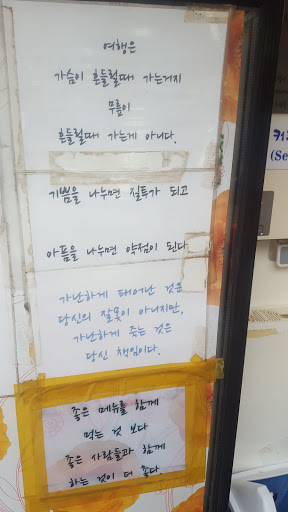 여행은
가슴이 흔들릴때 가는거지
무릎이
흔들릴때 가는게 아니다.
기쁨을 나누면 질투가 되고
아픔을 나누면 약점이 된다
가난하게 태어난 것은
당신의 잘못이 아니지만,
가난하게 죽는 것은
당신 책임이다.
좋은 메뉴를 함께
먹는 것 보다
좋은 사람들과 함께
하는 것이 더 좋다
커
(Se